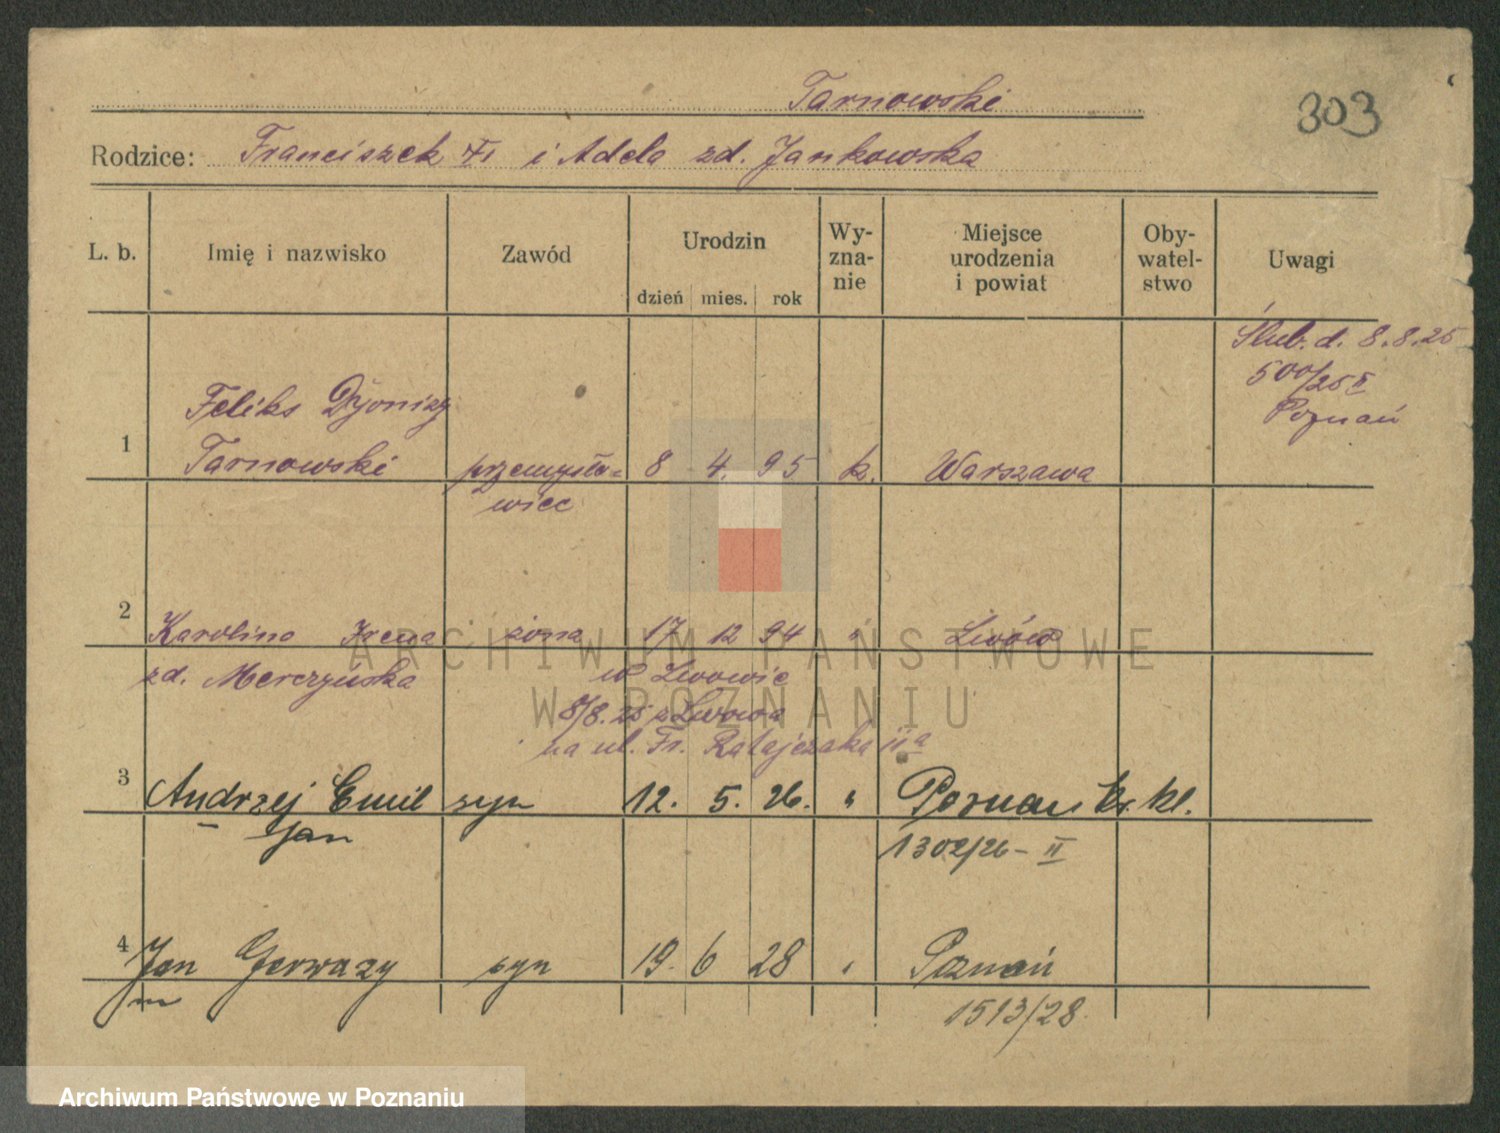 Tarnowski
303
Rodzice: Franciszek i Adela zd. Jankowska
L. b.
Imię i nazwisko
Zawód
Urodzin
dzień mies. rok
Wy-
zna-
nie
Miejsce
urodzenia
i powiat
Oby-
watel-
stwo
Uwagi
Ślub. d. 8.8.25
500/25 II
Poznań
Feliks Dyonizy
1 Tarnowski przemysło= 8 4. 95 k. Warszawa
wiec
2 Karolina Irena żona 17 12 94 " Lwów
zd. Merczyńska w Lwowie
8/8. 25 z Lwowa
na ul. Fr. Ratajczaka 11a
3 Andrzej Emil syn 12. 5. 26. " Poznań kr. kl.
Jan
1302/26 - II
4 Jan Gerwazy syn 19. 6 28 " Poznań
1513/28
ARCHIWUM PAŃSTWOWE
W POZNANIU
Archiwum Państwowe w Poznaniu